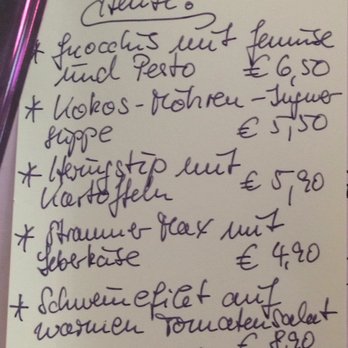 Heute:
* Gnocchis mit Gemüse
und Pesto € 6,50
* Kokos-Möhren-Ingwer
suppe € 5,50
* Heringstip mit
Kartoffeln € 5,90
* Strammer Max mit
Leberkäse € 4,90
* Schweinefilet auf
warmen Tomatensalat
€ 8,90